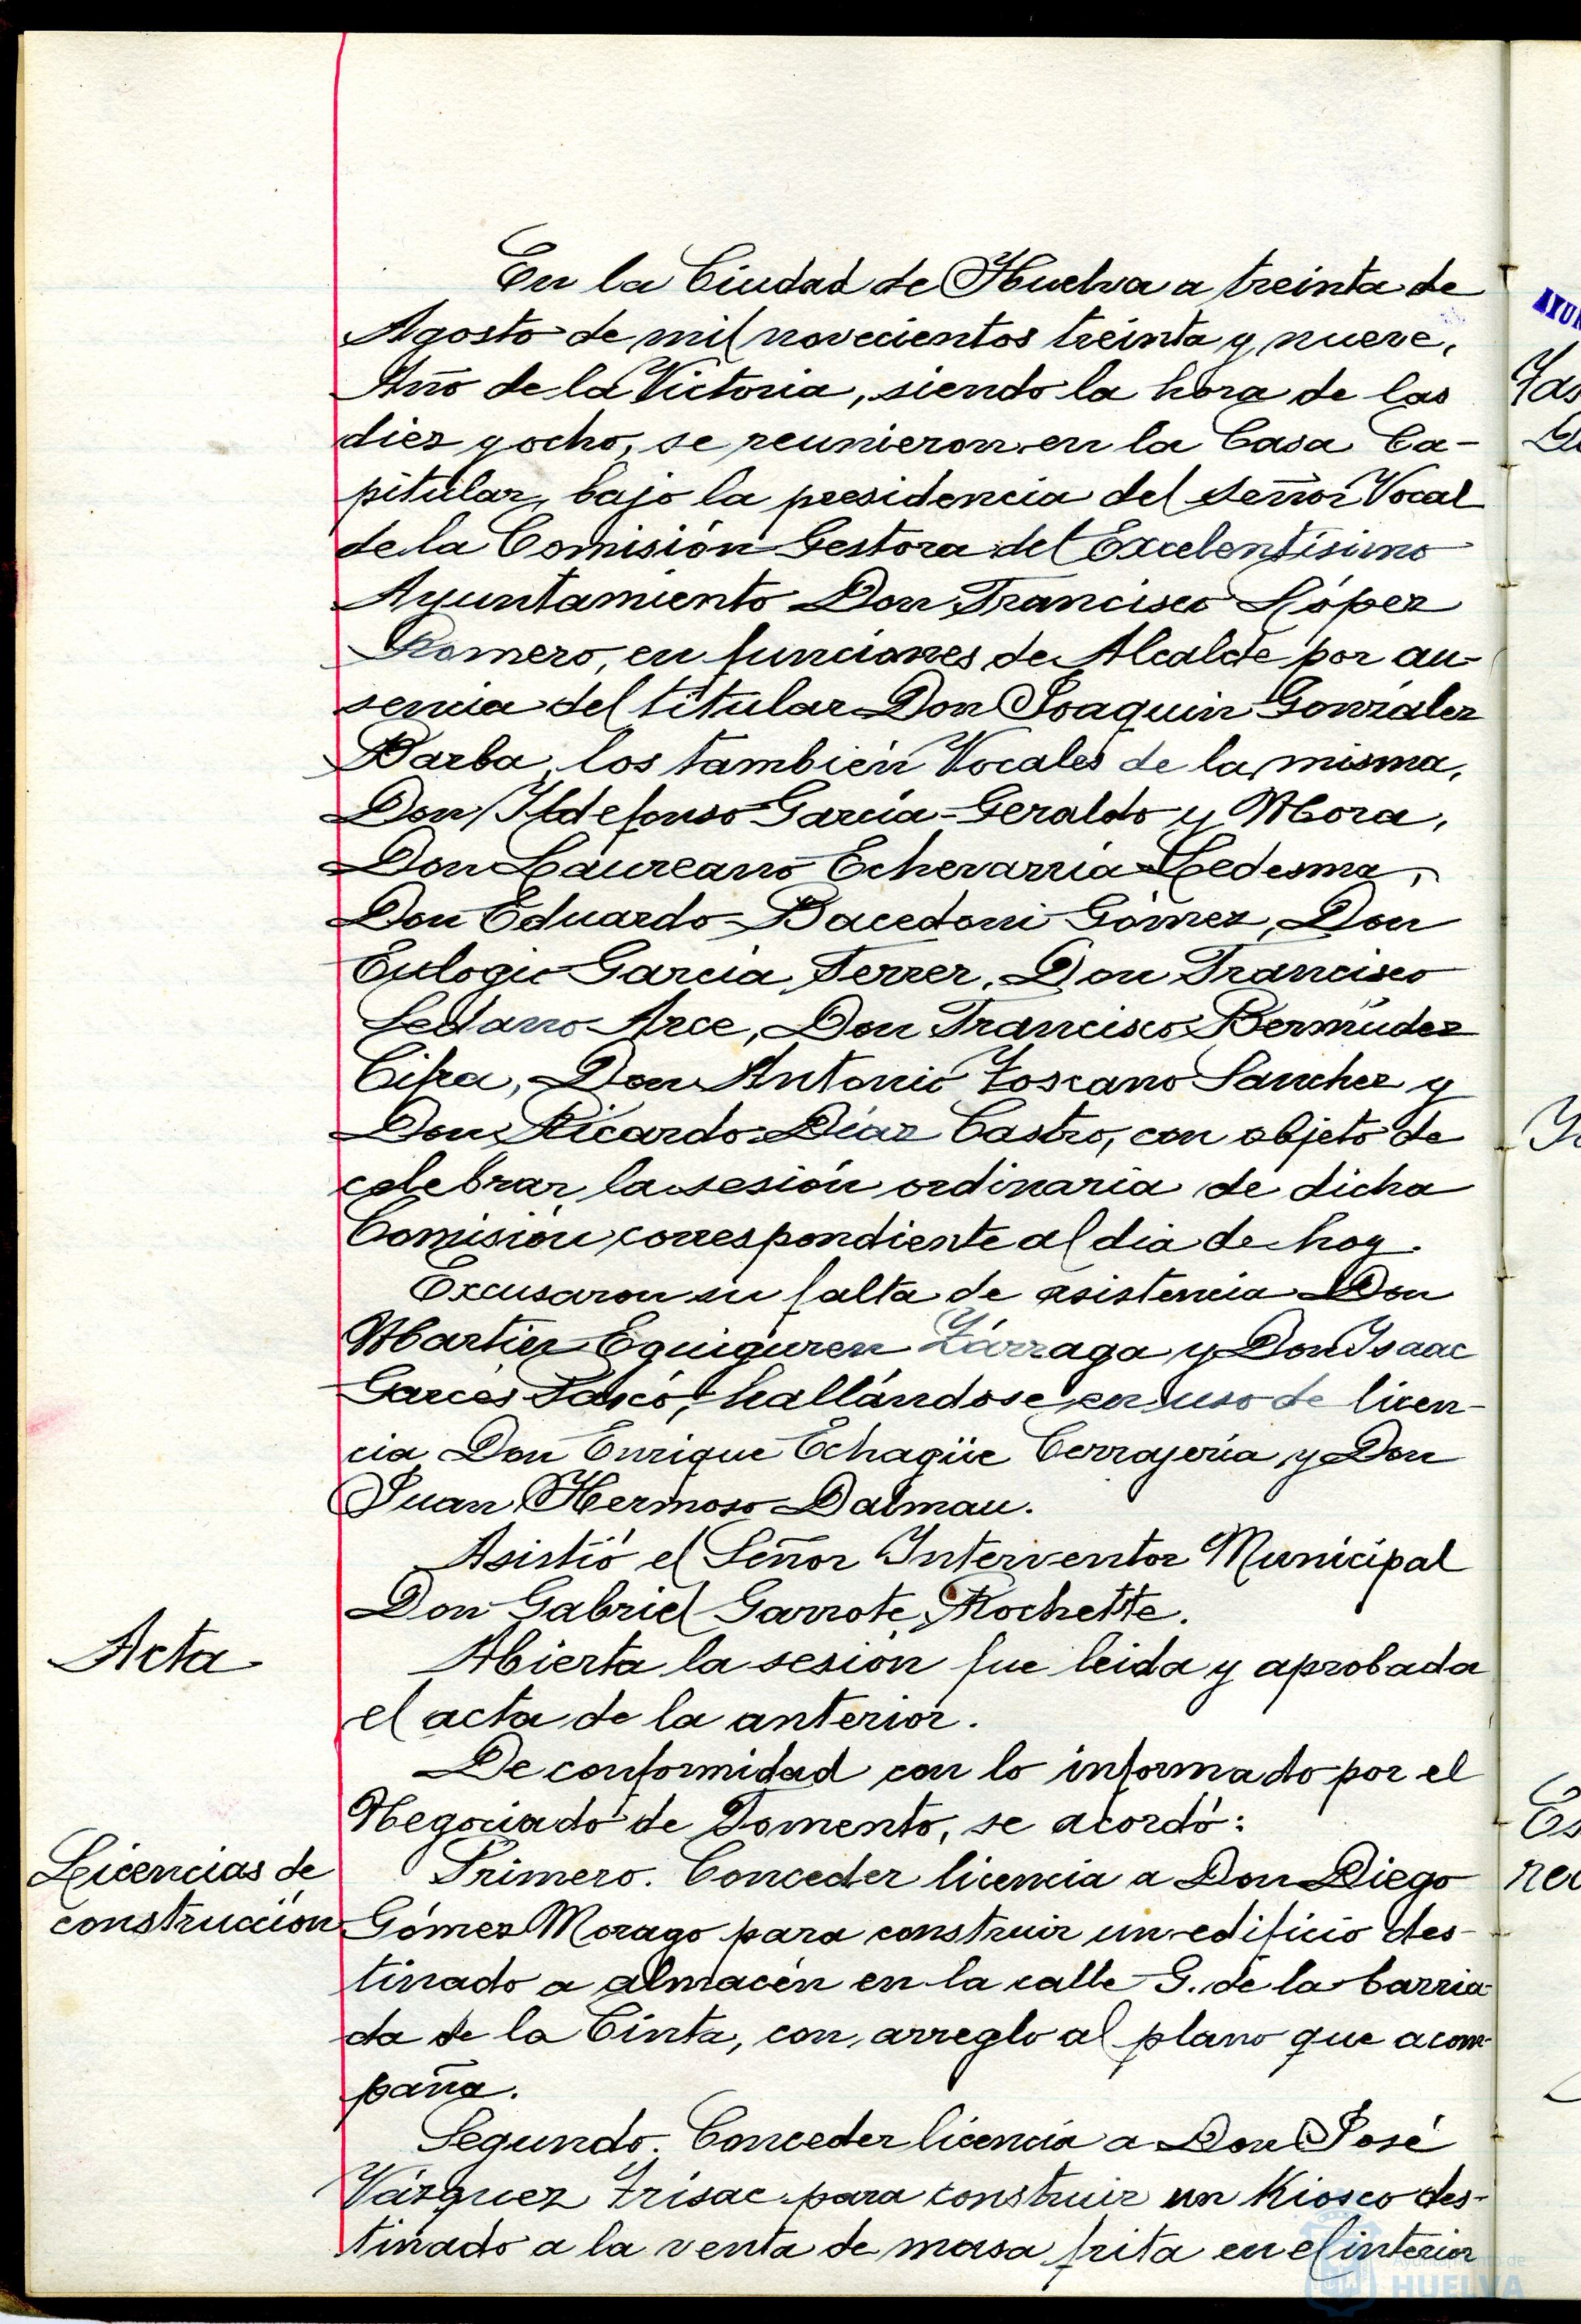 En la Ciudad de Huelva a treinta de
Agosto de mil novecientos treinta y nueve,
Año de la Victoria, siendo la hora de las
diez y ocho, se reunieron en la Casa Ca-
pitular, bajo la presidencia del señor Vocal
de la Comisión Gestora del Excelentísimo
Ayuntamiento Don Francisco López
Romero, en funciones de Alcalde por au-
sencia del titular Don Joaquin González
Barba, los también Vocales de la misma,
Don Ildefonso García-Geraldo y Mora,
Don Laureano Echevarría Ledesma,
Don Eduardo Bacedoni Gómez, Don
Eulogio García Ferrer, Don Francisco
Sedano Arce, Don Francisco Bermúdez
Cifra, Don Antonio Toscano Sanchez y
Don Ricardo Díaz Castro, con objeto de
celebrar la sesión ordinaria de dicha
Comisión correspondiente al dia de hoy.
Excusaron su falta de asistencia Don
Martin Eguiguren Zárraga y Don Isaac
Garcés hallándose en uso de licen-
cia Don Enrique Echagüe Cerrajería y Don
Juan Hermoso Dalmau.
Asistió el Señor Interventor Municipal
Don Gabriel Garrote Rochette.
Acta
Abierta la sesión fue leida y aprobada
el acta de la anterior.
De conformidad con lo informado por el
Negociado de Fomento, se acordó:
Licencias de
construcción
Primero. Conceder licencia a Don Diego
Gómez Morago para construir un edificio des-
tinado a almacén en la calle G. de la barria-
da de la Cinta, con arreglo al plano que acom-
paña.
Segundo. Conceder licencia a Don José
Vázquez para construir un Kiosco des-
tinado a la venta de masa frita en el interior
Ayuntamiento de
HUELVA